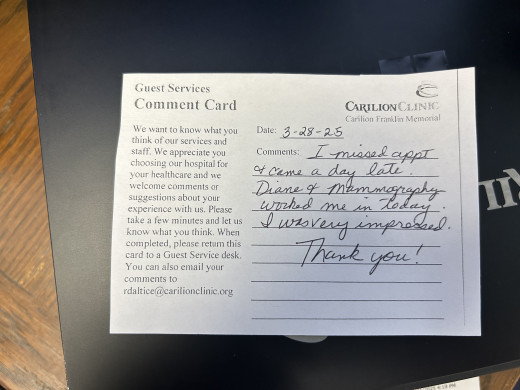 Guest Services
Comment Card
We want to know what you
think of our services and
staff. We appreciate you
choosing our hospital for
your healthcare and we
welcome comments or
suggestions about your
experience with us. Please
take a few minutes and let us
know what you think. When
completed, please return this
card to a Guest Service desk.
You can also email your
comments to
rdaltice@carilionclinic.org
CARILIONCLINIC
Carilion Franklin Memorial
Date: 3-28-25
Comments: I missed appt
& came a day late.
Diane & Mammography
worked me in today.
I was very impressed.
Thank you!